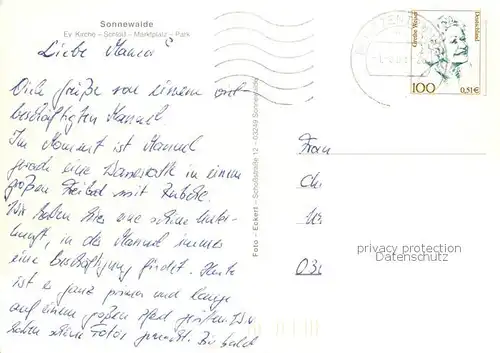 Sonnewalde
Ev. Kirche – Schloß – Marktplatz – Park
Liebe Mama
Viele Grüße von einem
beschäftigten Manuel.
Im Moment ist Manuel
gerade eine in einem
großen Freibad mit
Wir haben hier eine schöne Unter-
kunft, in der Manuel immer
eine Beschäftigung findet. Heute
ist er ganz prima und lange
auf einem großen Pferd geritten. Wir
haben schöne Fotos gemacht. Bis bald
Foto – Eckert – Schloßstraße 12 – 03249 Sonnewalde
Grethe Weiser
Deutschland
100
0,51€
Frau
privacy protection
Datenschutz